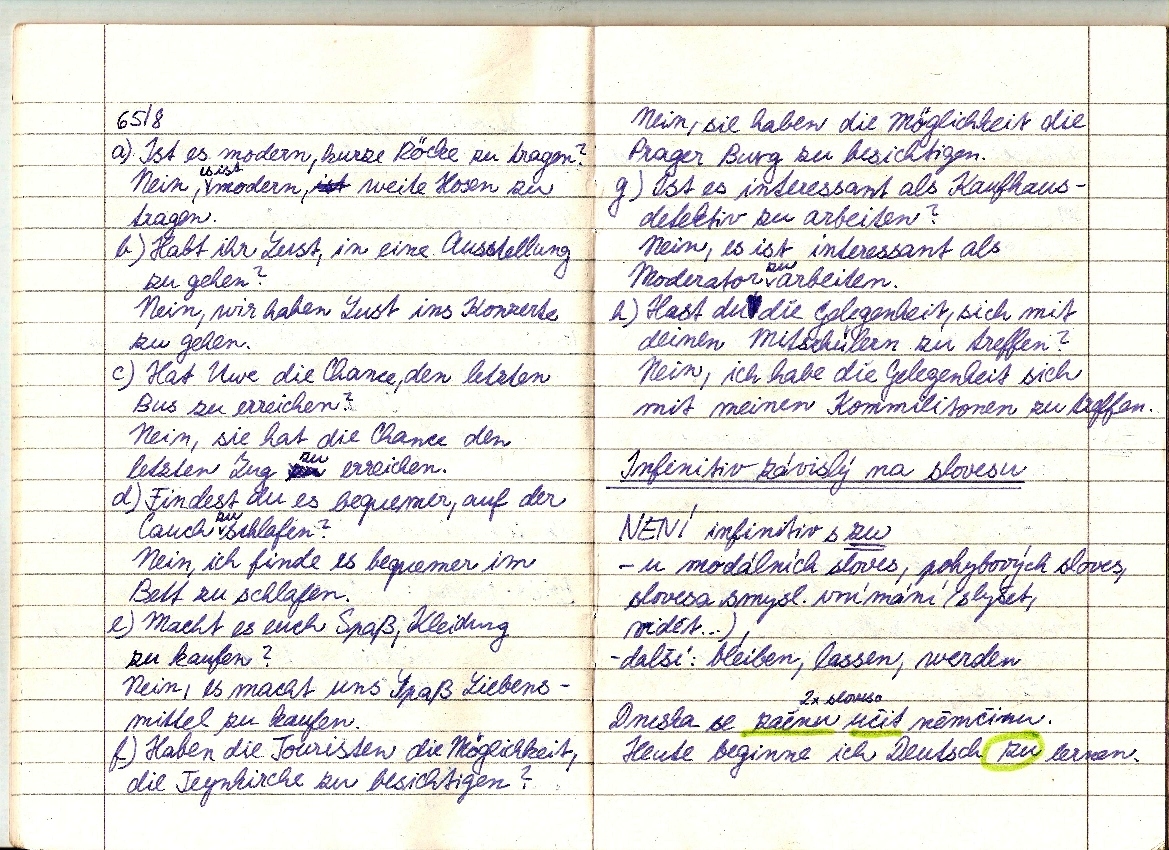 65/8
a) Ist es modern, kurze Röcke zu tragen?
Nein, es ist modern, ist weite Hosen zu
tragen.
b) Habt ihr Lust, in eine Ausstellung
zu gehen?
Nein, wir haben Lust ins Konzerte
zu gehen.
c) Hat Uwe die Chance, den letzten
Bus zu erreichen?
Nein, sie hat die Chance den
letzten Zug zu erreichen.
d) Findest du es bequemer, auf der
Cauch zu schlafen?
Nein, ich finde es bequemer im
Bett zu schlafen.
e) Macht es euch Spaß, Kleidung
zu kaufen?
Nein, es macht uns Spaß Liebens-
mittel zu kaufen.
f) Haben die Touristen die Möglichkeit,
die Teynkirche zu besichtigen?
Nein, sie haben die Möglichkeit die
Prager Burg zu besichtigen.
g) Ist es interessant als Kaufhaus-
detektiv zu arbeiten?
Nein, es ist interessant als
Moderator zu arbeiten.
h) Hast du die Gelegenheit, sich mit
deinen Mitschülern zu treffen?
Nein, ich habe die Gelegenheit sich
mit meinen Kommilitonen zu treffen.
Infinitiv závislý na slovesu
NENÍ infinitiv s zu
- u modálních sloves, pohybových sloves,
slovesa smysl. vnímání (slyšet,
vidět...),
- další: bleiben, lassen, werden
2x sloveso
Dneska se začnu učit němčinu.
Heute beginne ich Deutsch zu lernen.